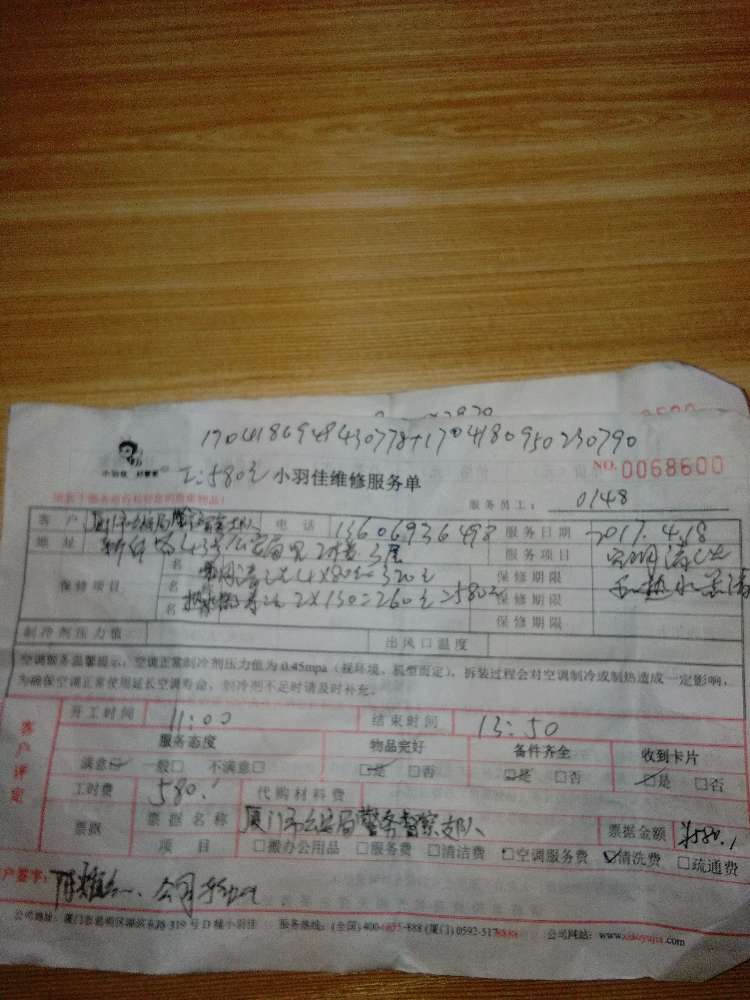 1704186948430778+1704180950230790
小羽佳 好管家
T:580元 小羽佳维修服务单 NO. 0068600
服务员工: 0148
客户 厦门市公安局警务督察支队 电话 13606936498 服务日期 2017.4.18
地址 新华路43号公安局 3层 服务项目 空调清洗
保修项目 名 空调清洗4×80元=320元 保修期限 和热水器清
名 热水器清洗2×130=260元=580元 保修期限
名 保修期限
制冷剂压力值 出风口温度
空调服务温馨提示:空调正常制冷剂压力值为0.45mpa(视环境、机型而定),拆装过程会对空调制冷或制热造成一定影响,
为确保空调正常使用延长空调寿命,制冷剂不足时请及时补充。
客户评定
开工时间 11:00 结束时间 13:50
服务态度 物品完好 备件齐全 收到卡片
满意☑ 一般□ 不满意□ ☑是 □否 ☑是 □否 ☑是 □否
工时费 580. 代购材料费
票据 票据名称 厦门市公安局警务督察支队 票据金额 ¥580.
项目 □搬办公用品 □服务费 □清洁费 □空调服务费 ☑清洗费 □疏通费
客户签字:
公司地址:厦门市思明区湖滨东路319号D栋小羽佳 服务热线:(全国)400-1855-888 (厦门)0592-5178888 公司网站:www.xiaoyujia.com